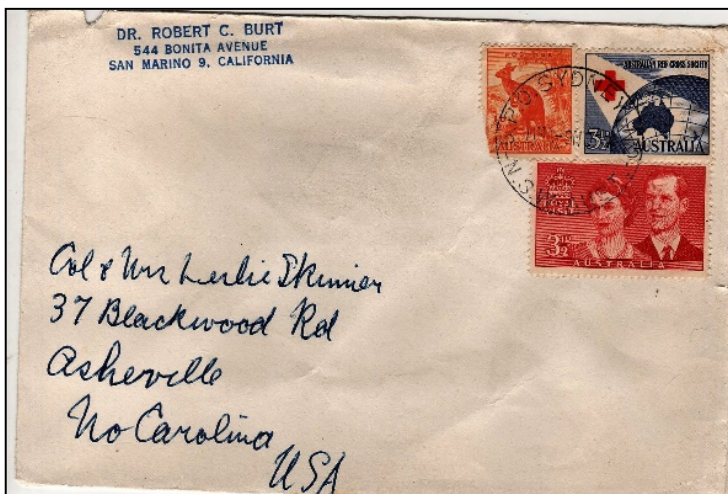 DR. ROBERT C. BURT
544 BONITA AVENUE
SAN MARINO 9, CALIFORNIA
AUSTRALIAN RED CROSS SOCIETY
AUSTRALIA
3½D
AUSTRALIA
SYDNEY
N.S.W.
3½D
AUSTRALIA
Col & Mrs Leslie Skinner
37 Blackwood Rd
Asheville
No Carolina
USA